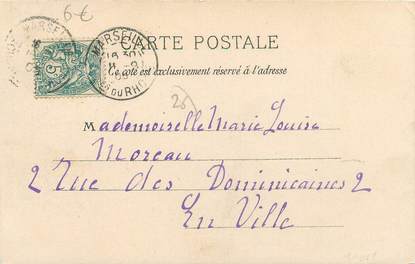 6€
CARTE POSTALE
Ce côté est exclusivement réservé à l'adresse
MARSEILLE
DU RHONE
5
26
Mademoiselle Marie Louise
Moreau
2 Rue des Dominicaines 2
En Ville